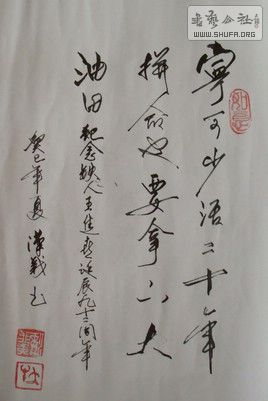 书艺公社
WWW.SHUFA.ORG
寧可少活二十年
拼命也要拿下大
油田 纪念铁人王進喜诞辰九十周年
癸巳年夏 漢 书
如是